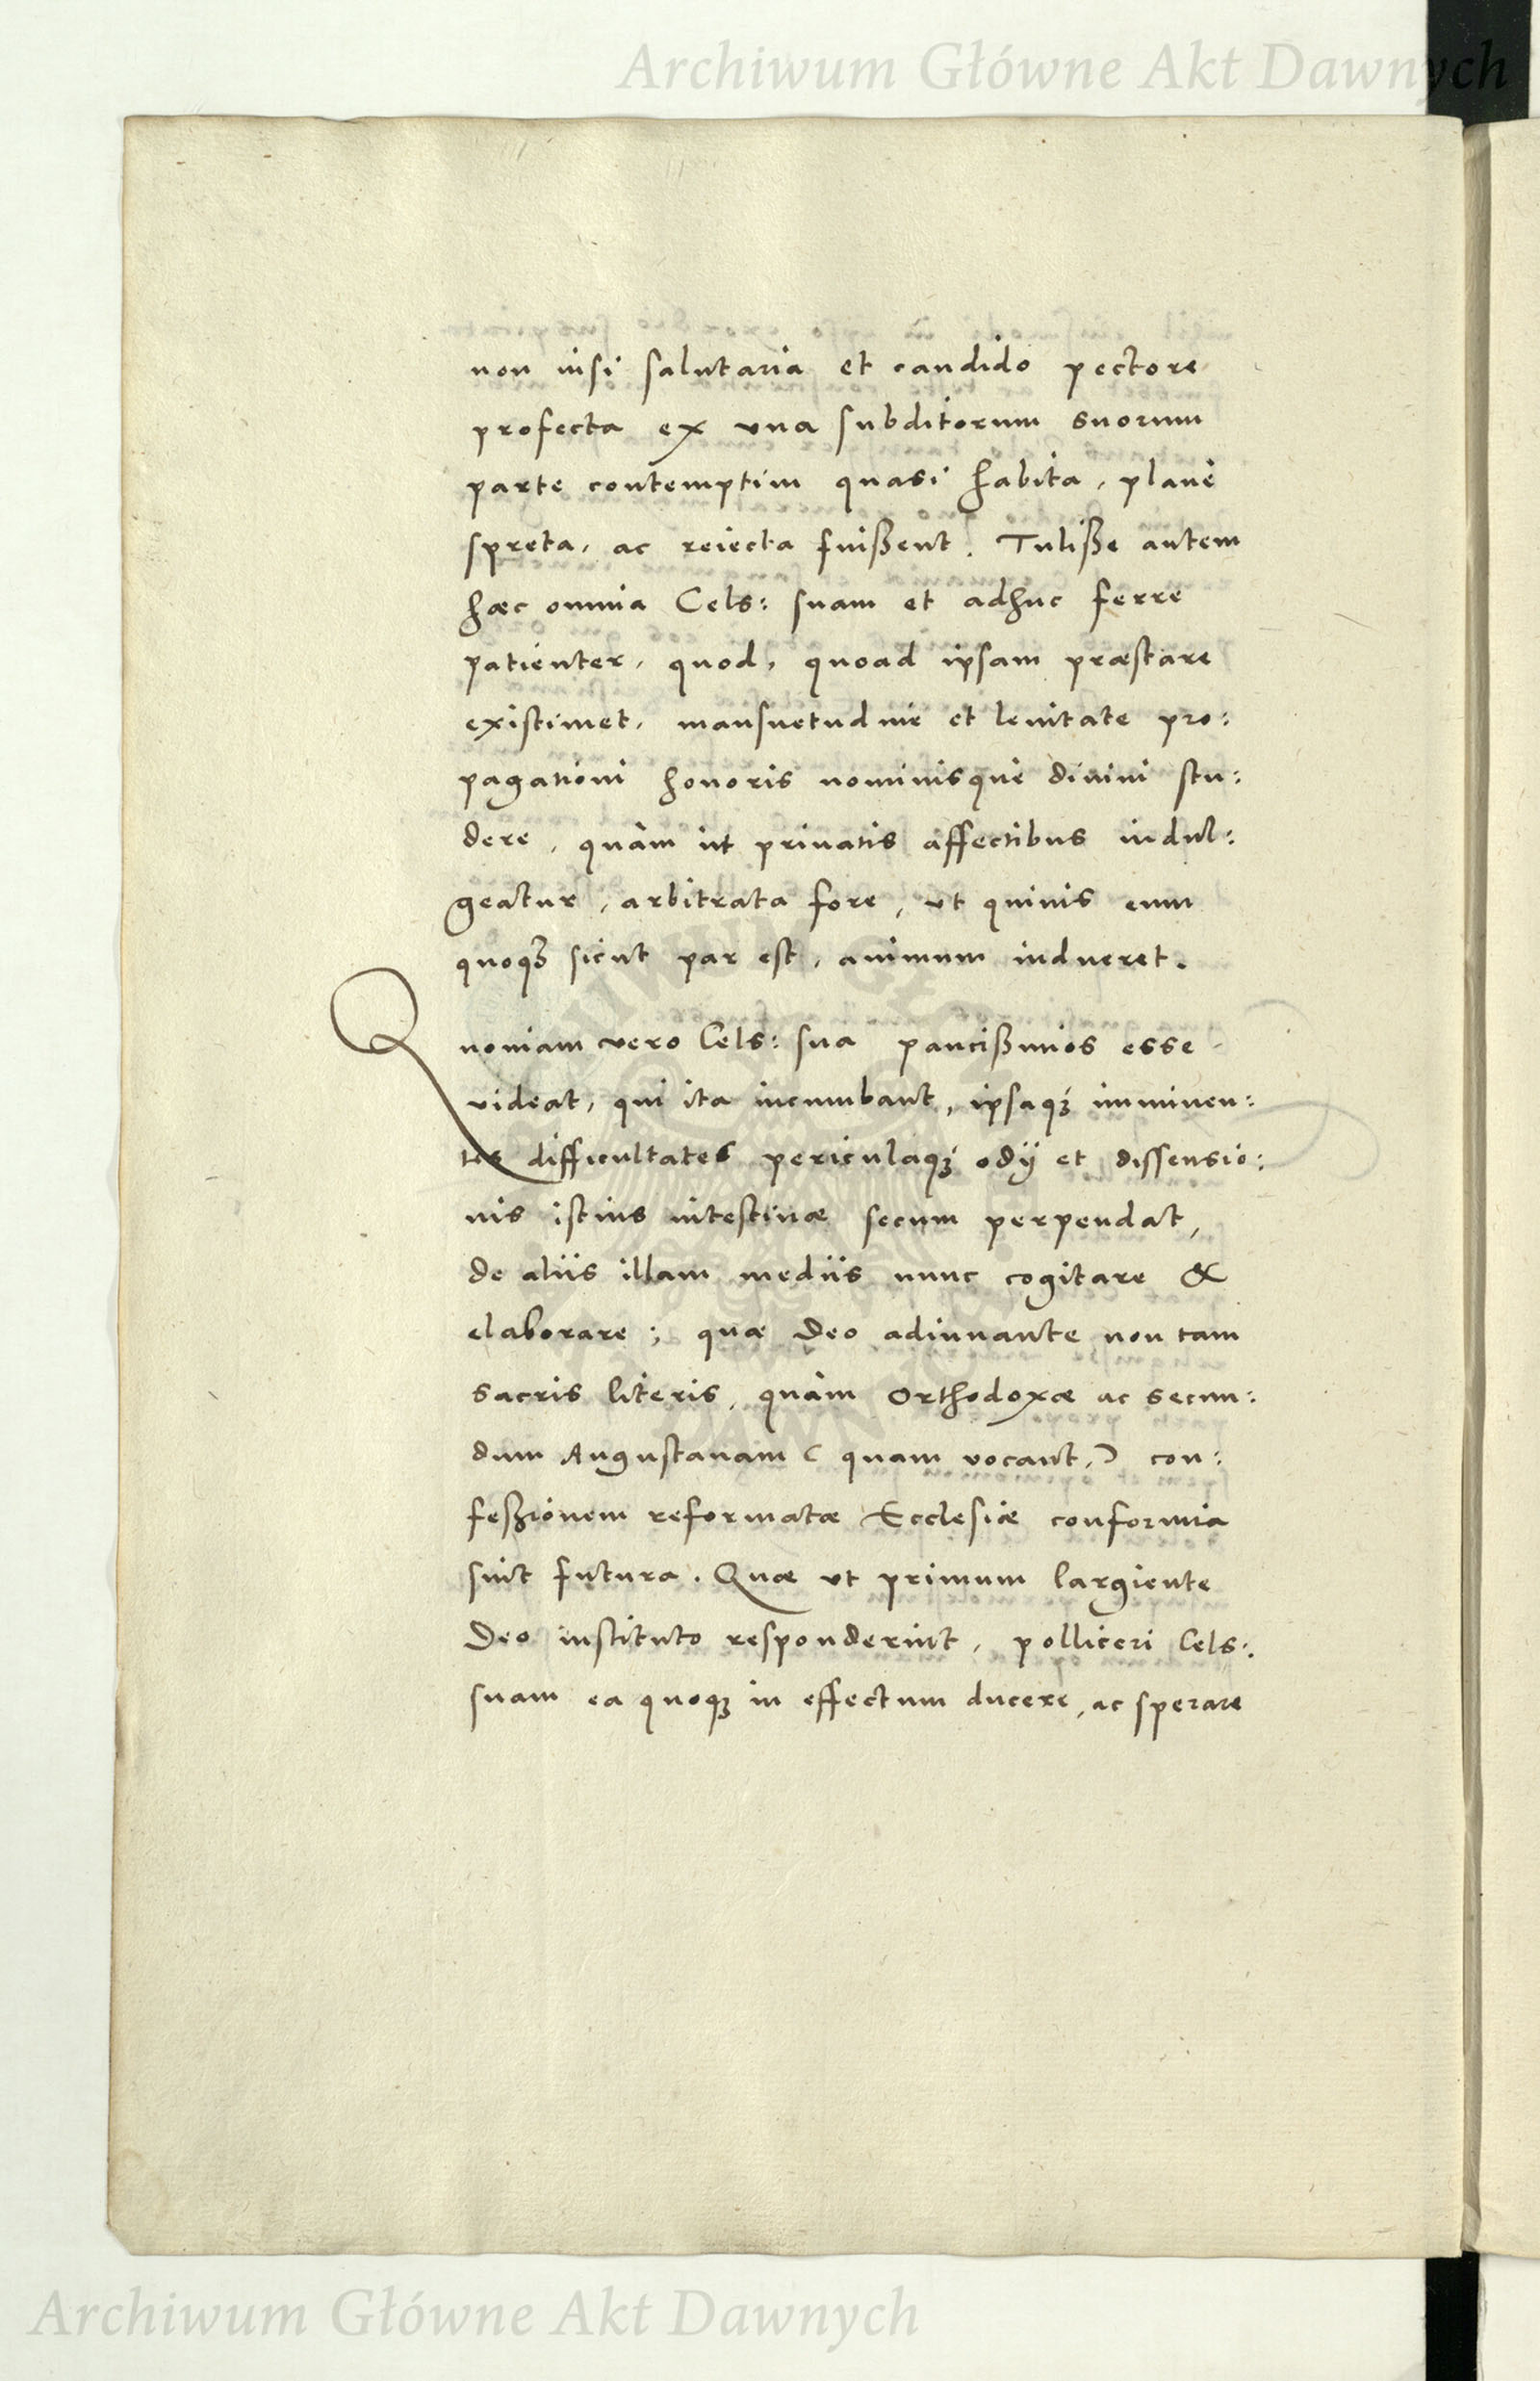 Archiwum Główne Akt Dawnych
non nisi salutaria et candido pectore
profecta ex vna subditorum suorum
parte contemptim quasi habita, planè
spreta, ac reiecta fuißent. Tuliße autem
hæc omnia Cels: suam et adhuc ferre
patienter, quod, quoad ipsam præstare
existimet, mansuetudine et lenitate pro:
pagationi honoris nominisque diuini stu:
dere, quàm ut priuatis affectibus indul:
geatur, arbitrata fore, vt quiuis eum
quoqꝫ sicut par est, animum indueret.
Quoniam vero Cels: sua paucißimos esse
videat, qui ita incumbant, ipsaqꝫ imminen:
tes difficultates periculaqꝫ odij et dissensio:
nis istius intestinæ secum perpendat,
de aliis illam mediis nunc cogitare &
elaborare; quæ Deo adiuuante non tam
sacris literis, quàm Orthodoxæ ac secun:
dum Augustanam (quam vocant,) con:
feßionem reformatæ Ecclesiæ conformia
sint futura. Quæ vt primum largiente
Deo instituto responderint, polliceri Cels:
suam ea quoqꝫ in effectum ducere, ac sperare
Archiwum Główne Akt Dawnych